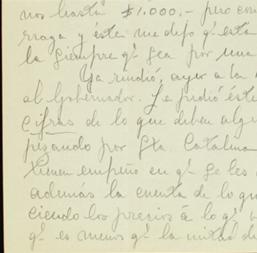 nos hasta $1.000.- pero con
rraga y éste me dijo qᵉ esta
la siempre qᵉ sea por una
Ya rindió, ayer a la
al Gobernador. Le pidió éste
cifras de lo que deben algu
pesando por Sta Catalina
tienen empeño en qᵉ se les
además la cuenta de lo qu
ciendo los precios á lo qᵉ
qᵉ es menos qᵉ la mitad de